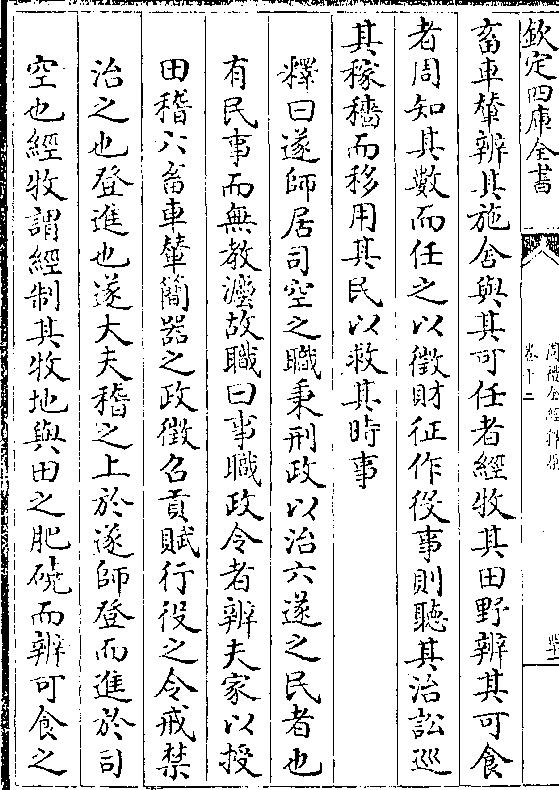 欽定四庫全書
周禮全經釋原
卷十二
畜車輦辨其施舍與其可任者經牧其田野辨其可食
者周知其數而任之以徵財征作役事則聽其治訟巡
其稼穡而移用其民以救其時事
釋曰遂師居司空之職秉刑政以治六遂之民者也
有民事而無教灋故職曰事職政令者辨夫家以授
田稽六畜車輦簡器之政徵召貢賦行役之令戒禁
治之也登進也遂大夫稽之上於遂師登而進於司
空也經牧謂經制其牧地與田之肥磽而辨可食之